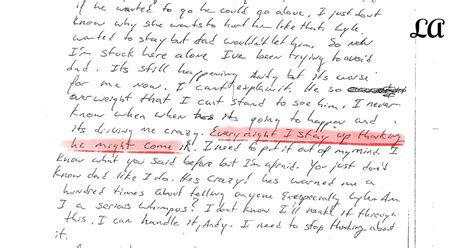 if he wanted to go he could go alone. I just dont
know why she wants to hurt him like that. Lyle
wanted to stay but dad wouldn't let him. So now
I'm stuck here alone I've been trying to avoid
dad. Its still happening Andy but its worse
for me now. I can't explain it. He so
overweight that I cant stand to see him. I never
know when when its going to happen and
its driving me crazy. Every night I stay up thinking
he might come in. I need to put it out of my mind. I
know what you said before but I'm afraid. You just don't
know dad like I do. Hes crazy! hes warned me a
hundred times about telling anyone especially Lyle. Am
I a serious whimpus? I dont know I'll make it through
this. I can handle it, Andy. I need to stop thinking about
it.
LA